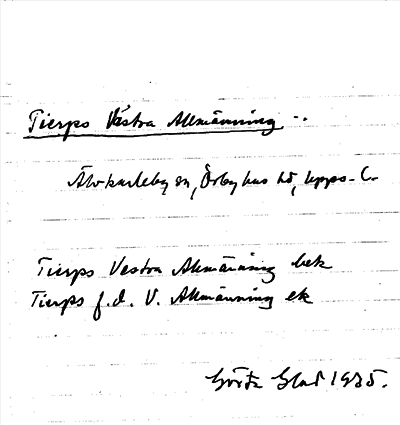 Tierps Västra Allmänning
Älvkarleby sn, Örbyhus hd, Upps. l.
Tierps Vestra Allmänning bek
Tierps f.d. V. Allmänning ek
Gösta Blad 1935.